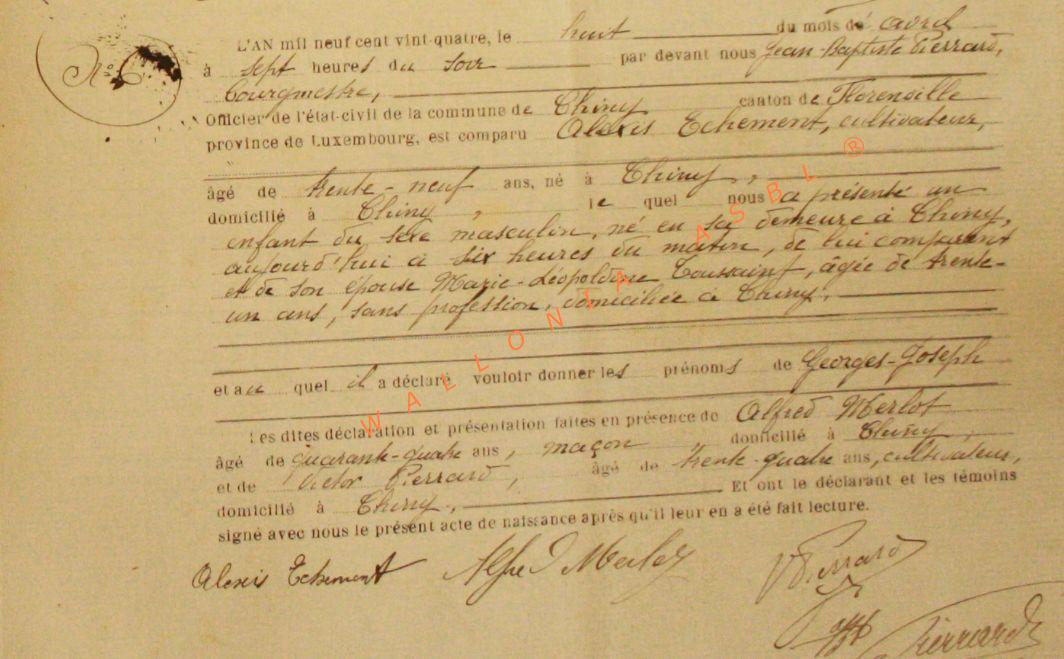 L'AN mil neuf cent vint-quatre, le huit du mois de avril
N° 6
à sept heures du soir par devant nous Jean-Baptiste Pierrard,
bourgmestre,
Officier de l'état-civil de la commune de Chiny canton de Florenville
province de Luxembourg, est comparu Alexis Echement, cultivateur,
âgé de trente-neuf ans, né à Chiny,
domicilié à Chiny, le quel nous a présenté un
enfant du sexe masculin, né en sa demeure à Chiny,
aujourd'hui à six heures du matin, de lui comparant
et de son épouse Marie-Léopoldine Toussaint, âgée de trente-
un ans, sans profession, domiciliée à Chiny,
et au quel il a déclaré vouloir donner les prénoms de Georges-Joseph
Les dites déclaration et présentation faites en présence de Alfred Merlot
âgé de quarante-quatre ans, maçon domicilié à Chiny,
et de Victor Pierrard, âgé de trente-quatre ans, cultivateur,
domicilié à Chiny, Et ont le déclarant et les témoins
signé avec nous le présent acte de naissance après qu'il leur en a été fait lecture.
Alexis Echement Alfred Merlot V Pierrard
Pierrard
WALLONIA ASBL ®